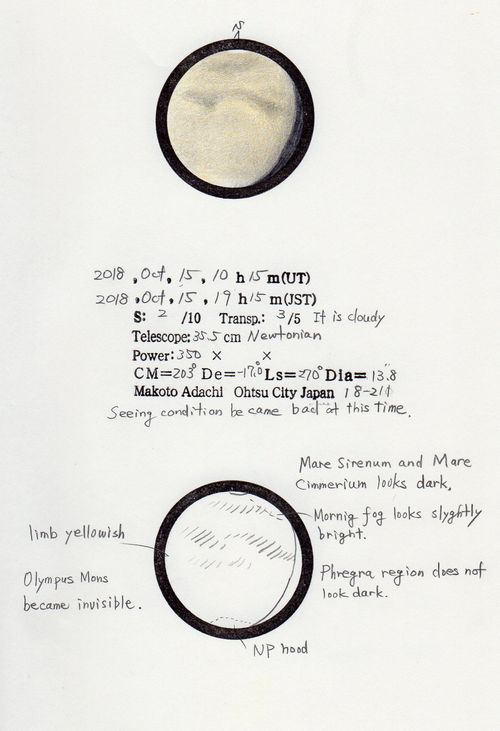 S
2018, Oct, 15, 10 h 15 m (UT)
2018, Oct, 15, 19 h 15 m (JST)
S: 2 /10 Transp.: 3 /5 It is cloudy
Telescope: 35.5 cm Newtonian
Power: 350 × ×
CM=203° De=-17.0° Ls=270° Dia= 13.8"
Makoto Adachi Ohtsu City Japan 18-211
Seeing condition be came bad at this time.
Mare Sirenum and Mare
Cimmerium looks dark.
Mornig fog looks slyghtly
bright.
limb yellowish
Phregra region does not
look dark.
Olympus Mons
became invisible.
NP hood